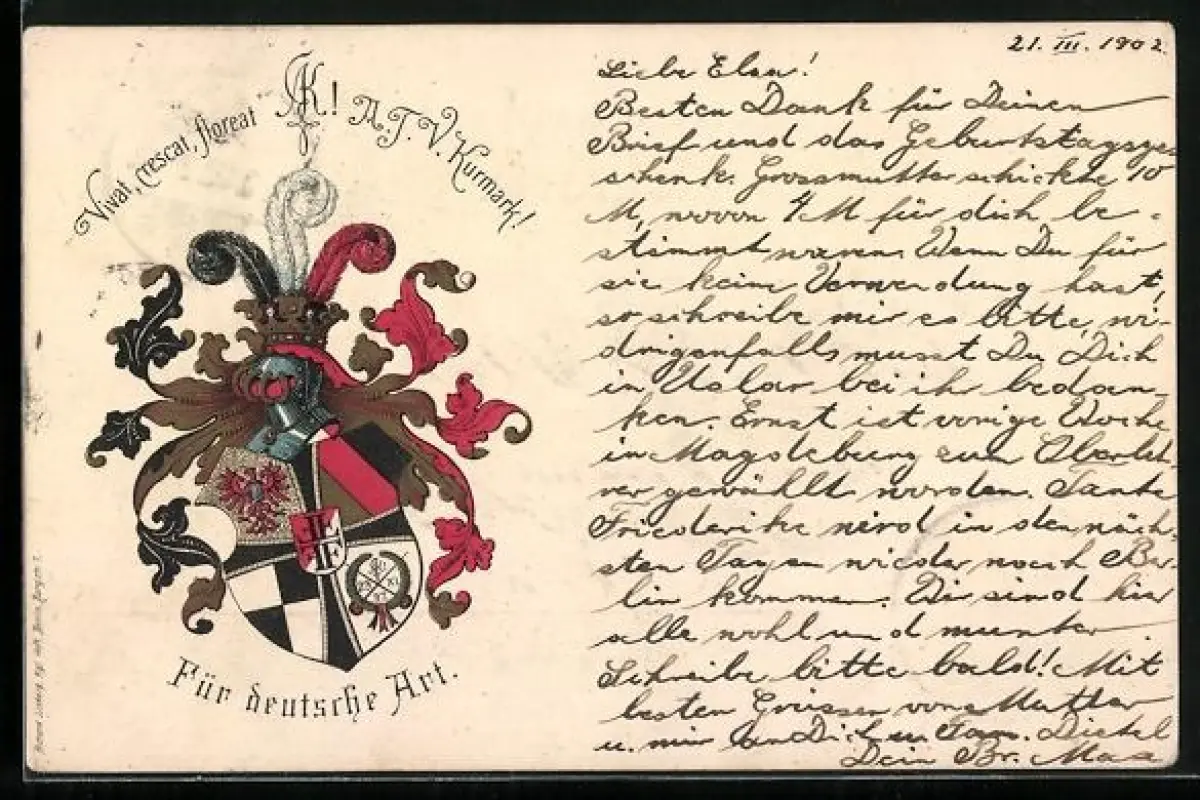 Vivat, crescat, floreat AK! A.T.V. Kurmark!
Für deutsche Art.
21. III. 1902.
Liebe Elsa!
Besten Dank für Deinen
Brief und das Geburtstagsge
schenk. Grossmutter schickte 10
M, wovon 4 M für dich be-
stimmt waren. Wenn Du für
sie keine Verwendung hast,
so schreibe mir es bitte, wi-
drigenfalls musst Du Dich
in Uslar bei ihr bedan-
ken. Ernst ist vorige Woche
in Magdeburg zum Oberleh-
rer gewählt worden. Tante
Friederike wird in den näch-
sten Tagen wieder nach Ber-
lin kommen. Wir sind hier
alle wohl und munter.
Schreibe bitte bald! Mit
besten Grüssen von Mutter
u. mir an Dich u. Fam. Dickel
Dein Br. Max